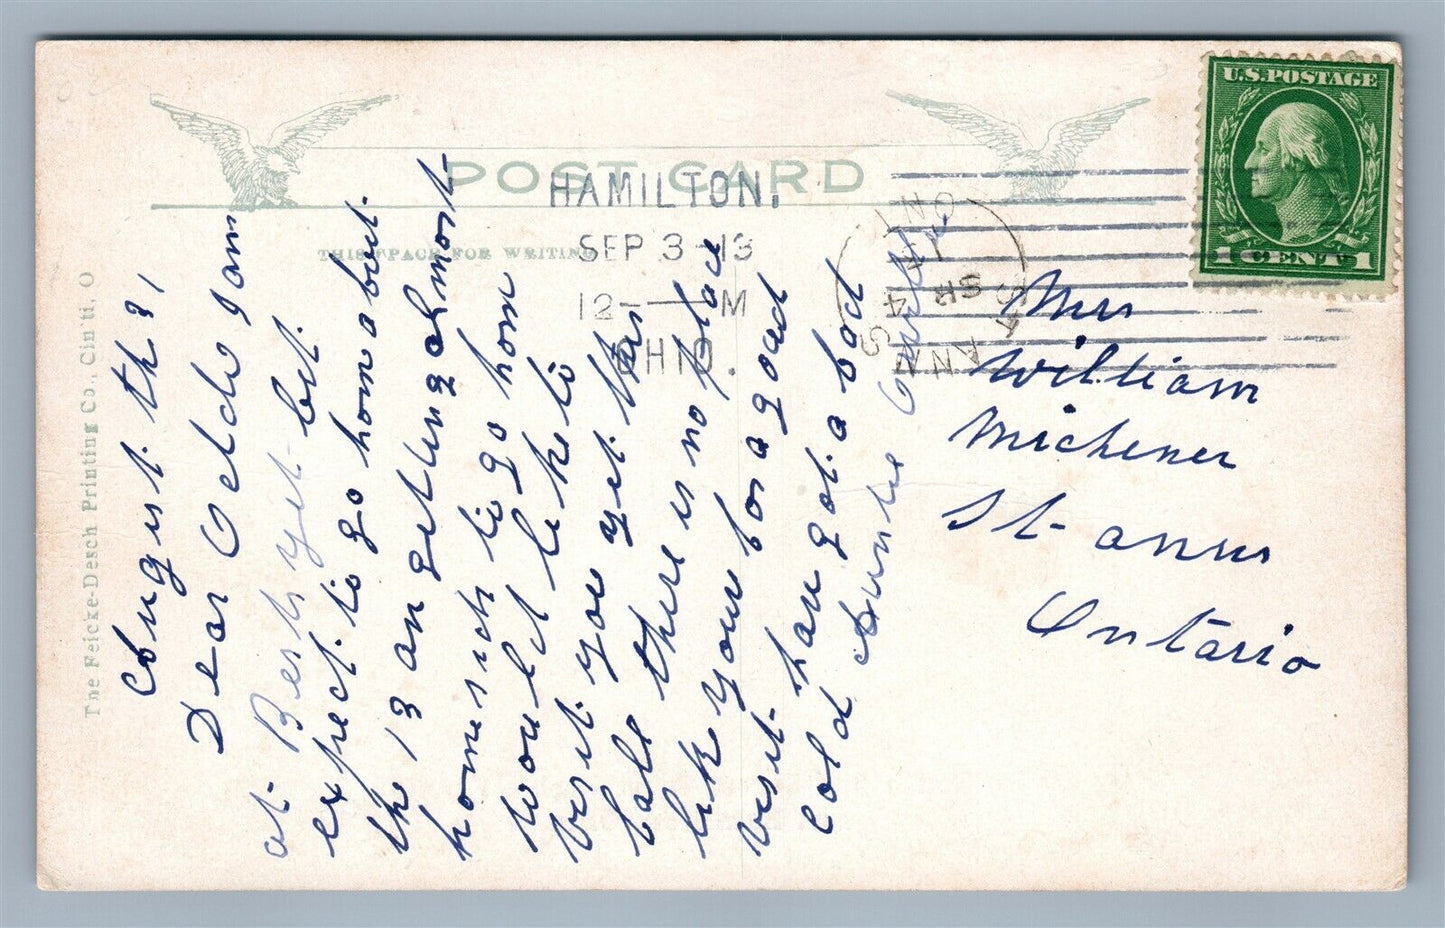 POST CARD
THIS SPACE FOR WRITING
HAMILTON,
SEP 3 - 13
12 - M
OHIO.
ST ANNS
ONT
SP 4
U.S.POSTAGE
1 CENT 1
The Feicke-Desch Printing Co., Cin'ti, O
august th 31
Dear Oeldo I am
at Berts yet but
expect to go hom about
the 13 am getting almost
homesick to go hom
would like to
visit you yet this
fall there is no place
like your for a good
visit have got a bad
cold Auntie
Mrs
William
Michener
St anns
Ontario